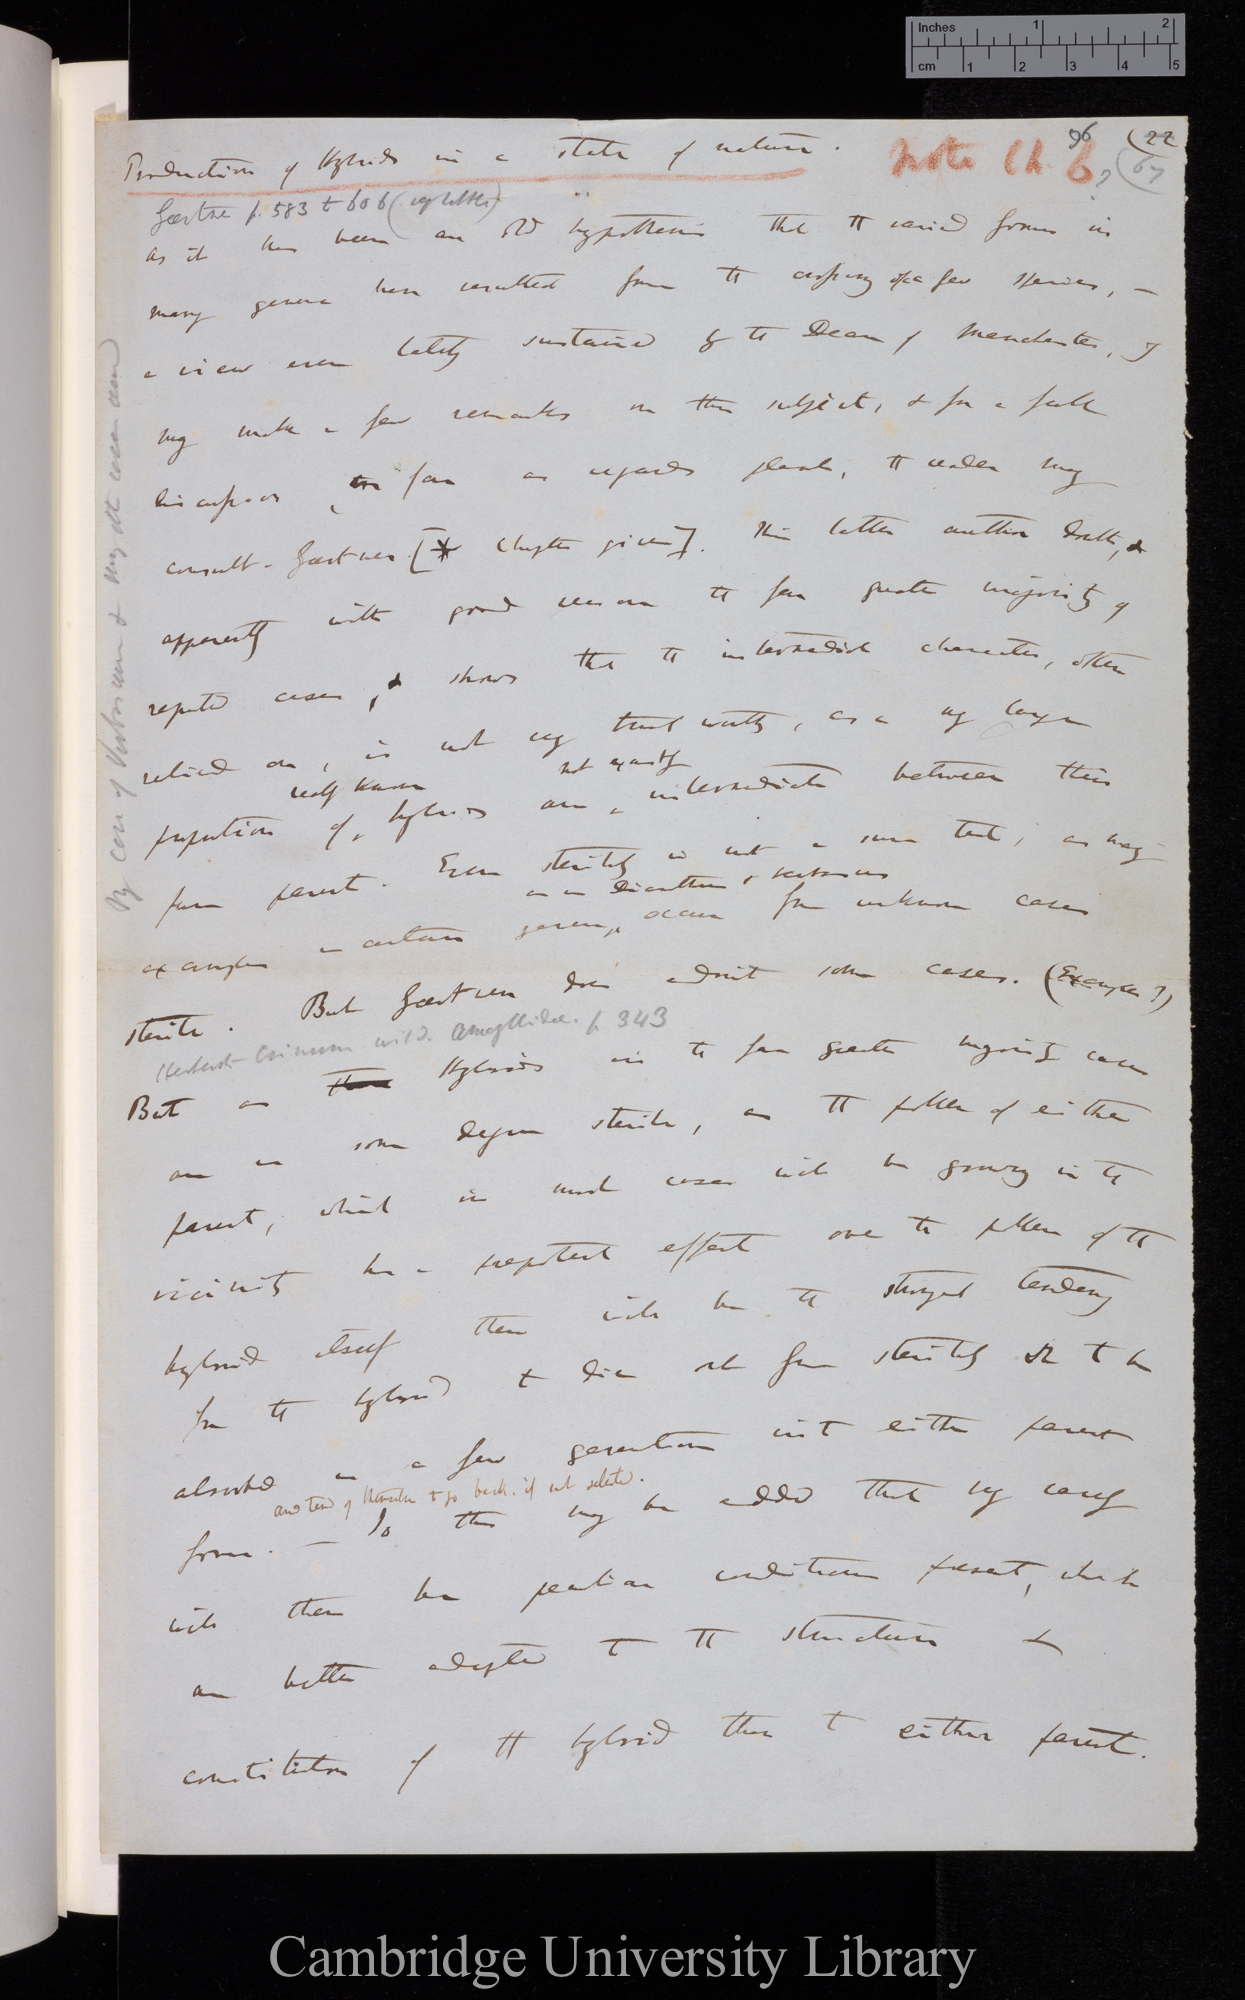 Inches 1 2
cm 1 2 3 4 5
96 (22
Production of Hybrids in a state of nature.
Note Ch. 6,
(67
Gærtner p. 583 to 606
As it has been an old hypothesis that the varied forms in
many genera have resulted from the crossing of a few species, —
a view even lately sustained by the Dean of Manchester, I
may make a few remarks on this subject, & for a full
discussion, so far as regards plants, the reader may
consult Gærtner. [* Chapter given]. This latter author doubts, &
apparently with good reason the far greater majority of
reputed cases, & shows that the intermediate character, often
relied on, is not very trustworthy, as a very large
well known not exactly
proportion of, hybrids are, intermediate between their
pure parents. Even sterility is not a sure test, as many
as in Dianthus & Verbascum
examples in certain genera, occur from unknown causes
sterile. But Gærtner does admit some cases. (Examples?)
Herbert Crinum wild. Amaryllidae. p. 343
But as Hybrids in the far greater majority cases
are in some degree sterile, as the pollen of either
parent, which in most cases will be growing in the
vicinity has a prepotent effect over the pollen of the
hybrid itself there will be the strongest tendency
for the hybrid to die out from sterility or to be
absorbed in a few generations into either parent
and tend of to go back. if not selected.
form. — To this may be added that very rarely
will there be peculiar conditions present, which
are better adapted to the structure &
constitution of the hybrid than to either parent.
By case of Verbascum & my other case
Cambridge University Library